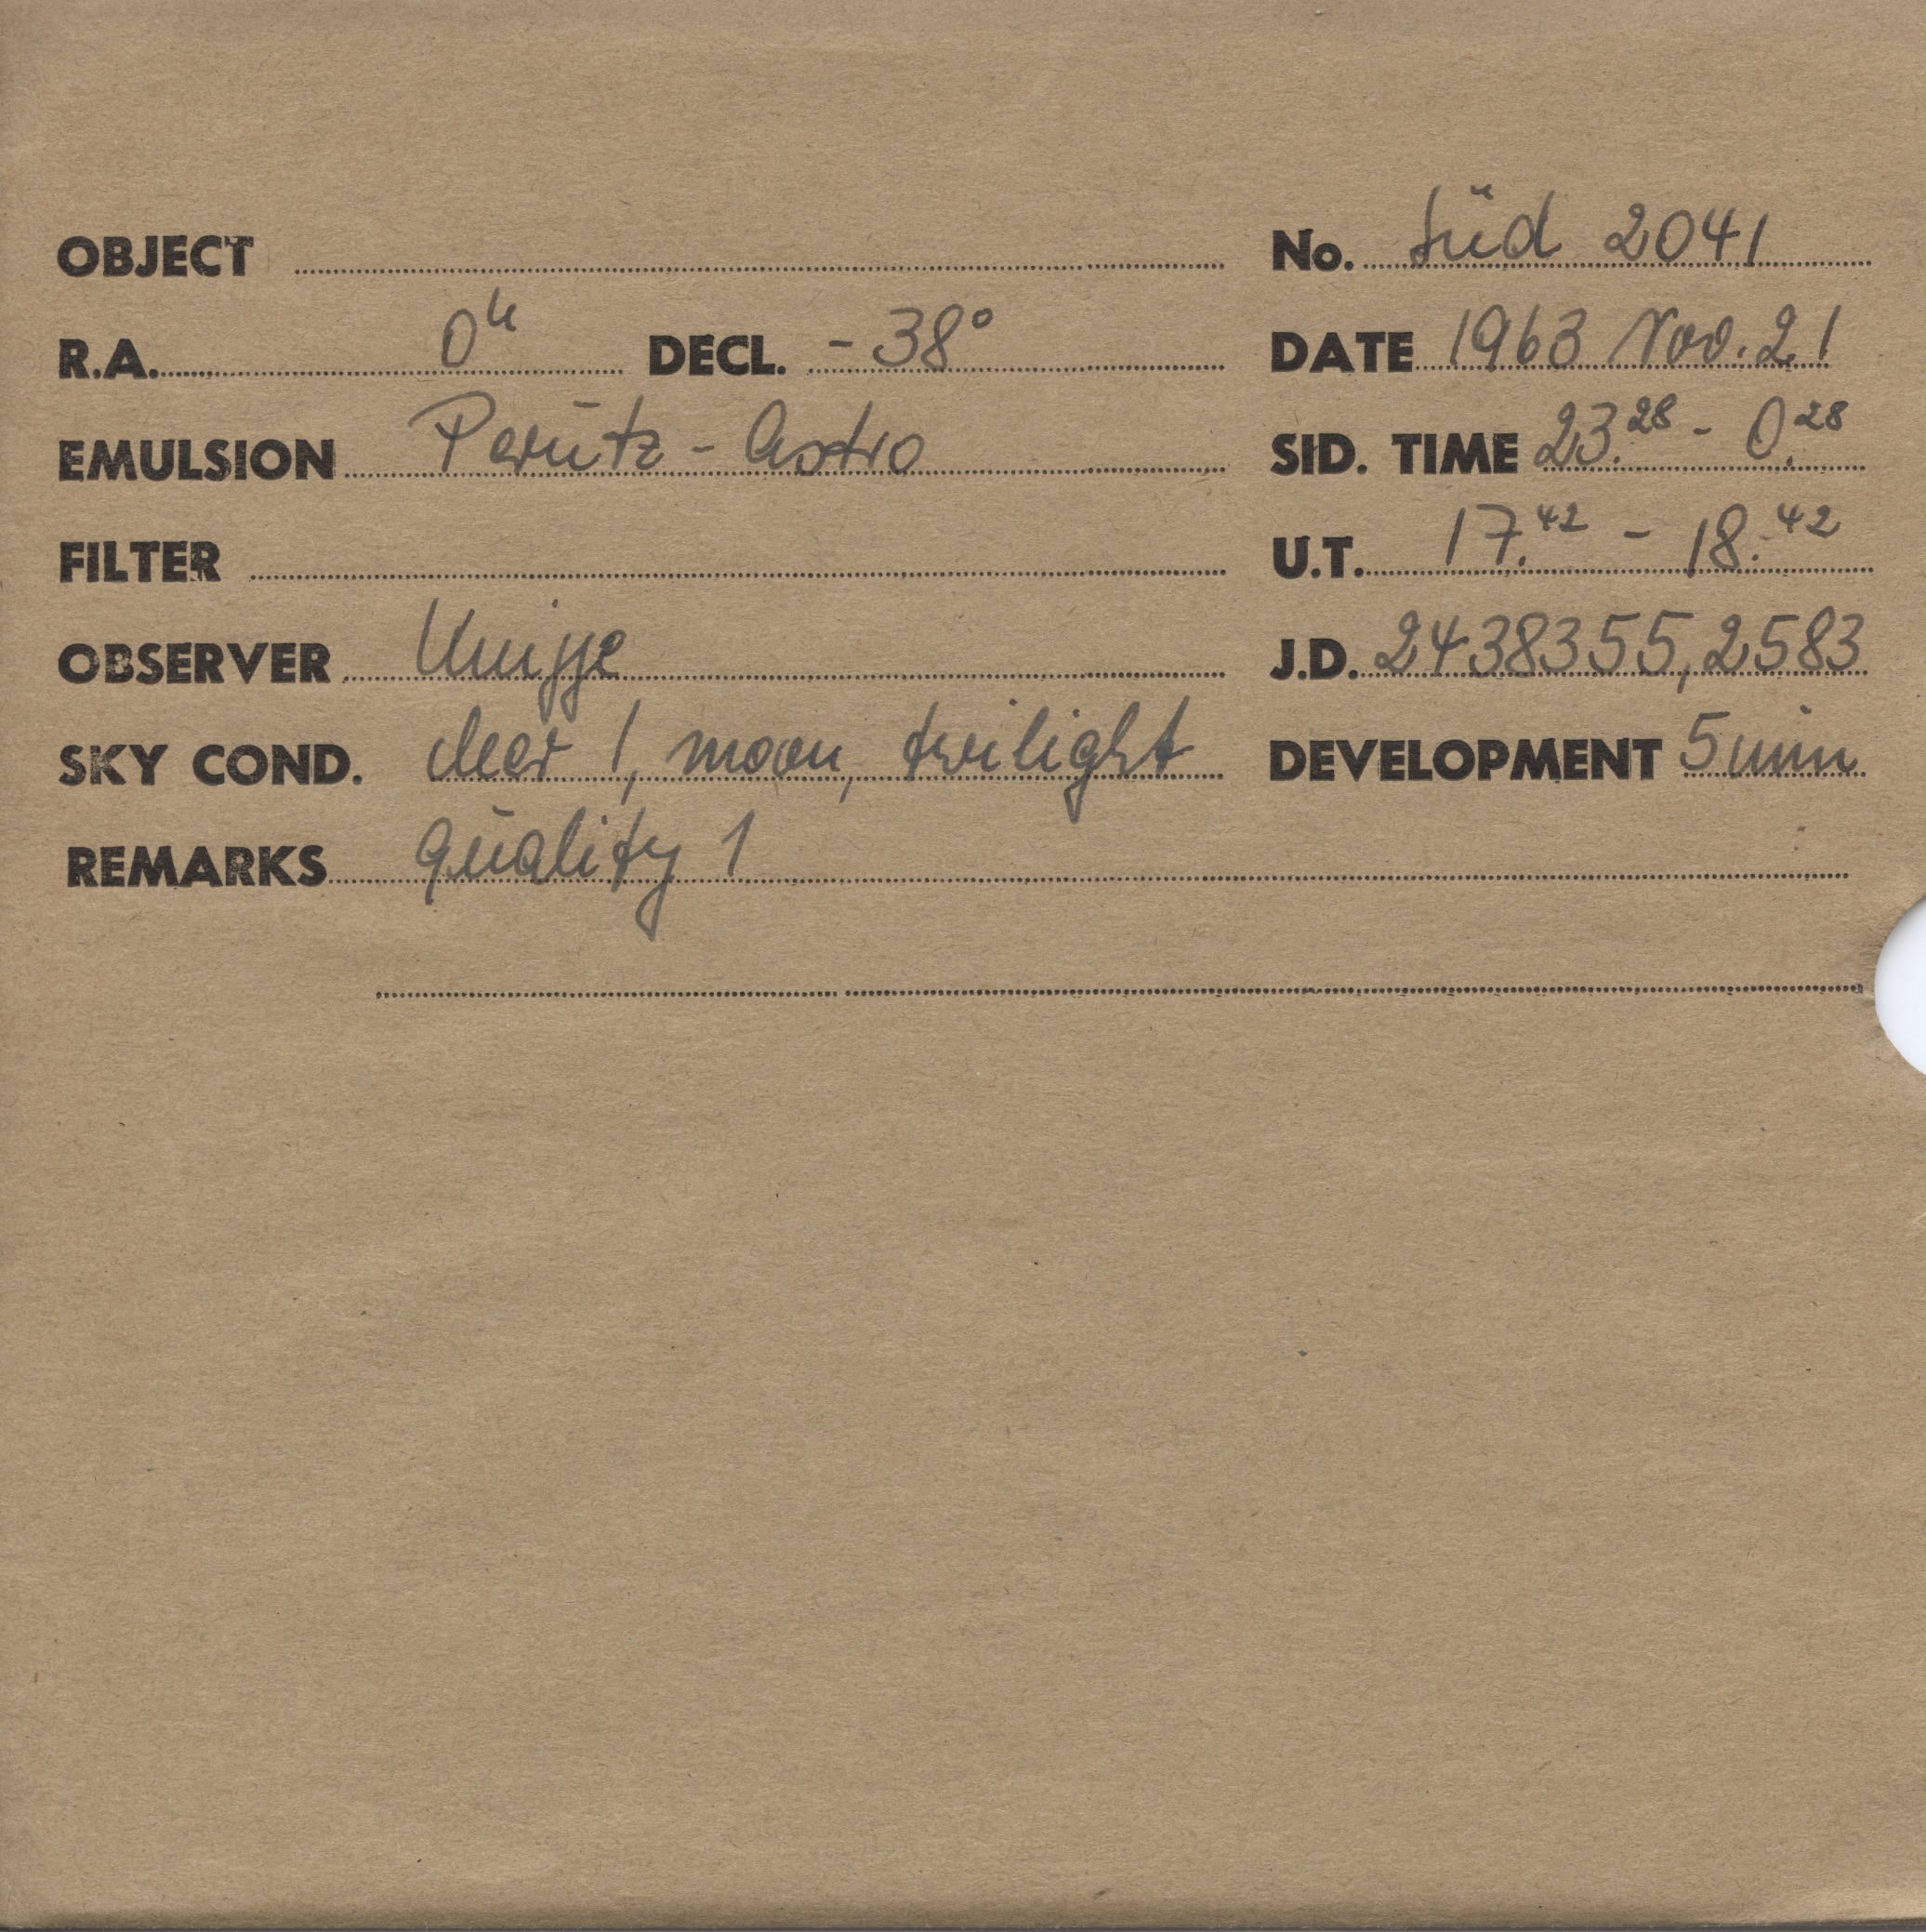 OBJECT No. Süd 2041
R.A. 0h DECL. -38° DATE 1963 Nov. 21
EMULSION Perutz - Astro SID. TIME 23.28 - 0.28
FILTER U.T. 17.42 - 18.42
OBSERVER J.D. 2438355,2583
SKY COND. clear 1, moon, twilight DEVELOPMENT 5 min
REMARKS quality 1